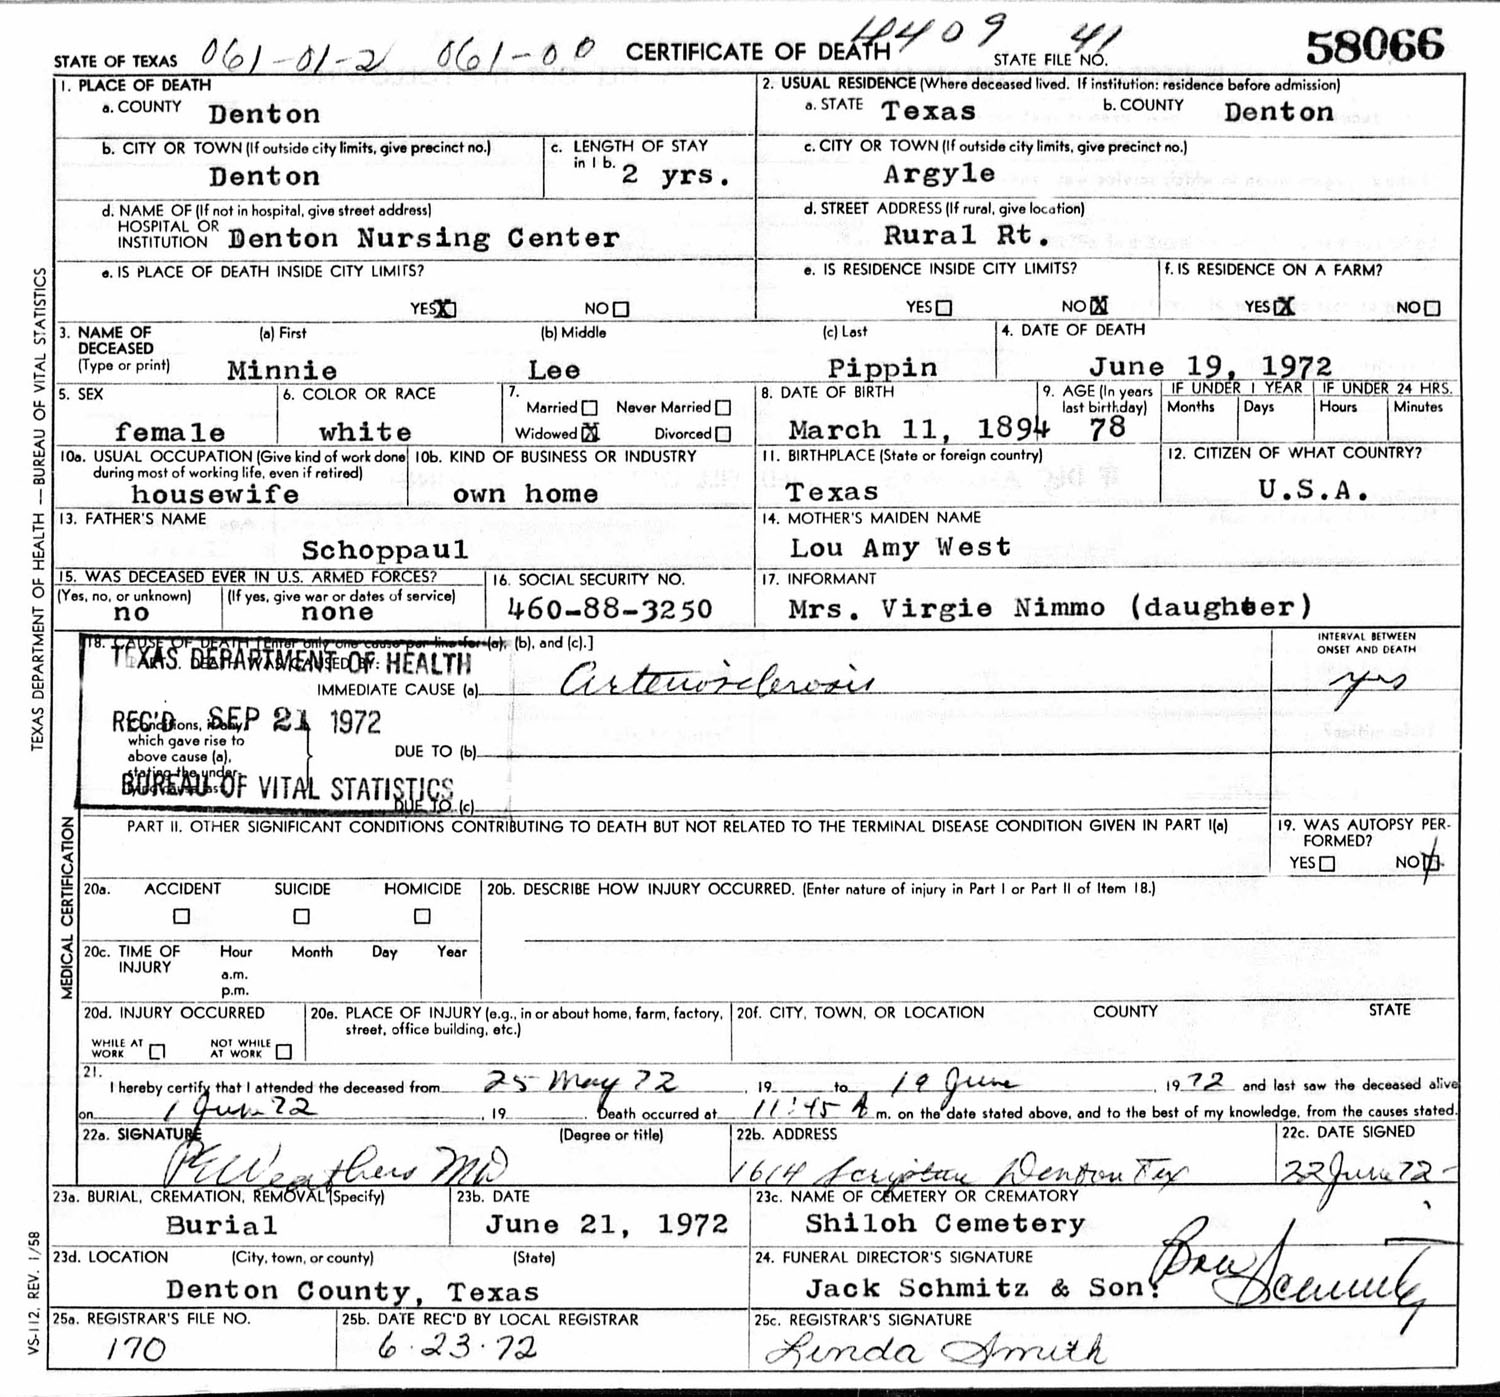 STATE OF TEXAS 061-01-2 061-00 CERTIFICATE OF DEATH 4409 STATE FILE NO. 41 58066
1. PLACE OF DEATH
a. COUNTY Denton
2. USUAL RESIDENCE (Where deceased lived. If institution: residence before admission)
a. STATE Texas b. COUNTY Denton
b. CITY OR TOWN (If outside city limits, give precinct no.)
Denton
c. LENGTH OF STAY
in 1 b. 2 yrs.
c. CITY OR TOWN (If outside city limits, give precinct no.)
Argyle
d. NAME OF (If not in hospital, give street address)
HOSPITAL OR
INSTITUTION Denton Nursing Center
d. STREET ADDRESS (If rural, give location)
Rural Rt.
e. IS PLACE OF DEATH INSIDE CITY LIMITS?
YES X NO
e. IS RESIDENCE INSIDE CITY LIMITS?
YES NO X
f. IS RESIDENCE ON A FARM?
YES X NO
3. NAME OF DECEASED (Type or print)
(a) First (b) Middle (c) Last
Minnie Lee Pippin
4. DATE OF DEATH
June 19, 1972
5. SEX
female
6. COLOR OR RACE
white
7.
Married Never Married
Widowed X Divorced
8. DATE OF BIRTH
March 11, 1894
9. AGE (In years
last birthday)
78
IF UNDER 1 YEAR IF UNDER 24 HRS.
Months Days Hours Minutes
10a. USUAL OCCUPATION (Give kind of work done
during most of working life, even if retired)
housewife
10b. KIND OF BUSINESS OR INDUSTRY
own home
11. BIRTHPLACE (State or foreign country)
Texas
12. CITIZEN OF WHAT COUNTRY?
U.S.A.
13. FATHER'S NAME
Schoppaul
14. MOTHER'S MAIDEN NAME
Lou Amy West
15. WAS DECEASED EVER IN U.S. ARMED FORCES?
(Yes, no, or unknown) (If yes, give war or dates of service)
no none
16. SOCIAL SECURITY NO.
460-88-3250
17. INFORMANT
Mrs. Virgie Nimmo (daughter)
18. CAUSE OF DEATH [Enter only one cause per line for (a), (b), and (c).]
PART I. DEATH WAS CAUSED BY:
TEXAS DEPARTMENT OF HEALTH
REC'D SEP 21 1972
BUREAU OF VITAL STATISTICS
INTERVAL BETWEEN
ONSET AND DEATH
IMMEDIATE CAUSE (a) Arteriosclerosis yrs
Conditions, if any,
which gave rise to
above cause (a),
stating the under-
lying cause last.
DUE TO (b)
DUE TO (c)
PART II. OTHER SIGNIFICANT CONDITIONS CONTRIBUTING TO DEATH BUT NOT RELATED TO THE TERMINAL DISEASE CONDITION GIVEN IN PART I(a)
19. WAS AUTOPSY PER-
FORMED?
YES NO
20a. ACCIDENT SUICIDE HOMICIDE
20b. DESCRIBE HOW INJURY OCCURRED. (Enter nature of injury in Part I or Part II of Item 18.)
20c. TIME OF INJURY
Hour Month Day Year
a.m.
p.m.
20d. INJURY OCCURRED
WHILE AT WORK NOT WHILE AT WORK
20e. PLACE OF INJURY (e.g., in or about home, farm, factory,
street, office building, etc.)
20f. CITY, TOWN, OR LOCATION COUNTY STATE
21.
I hereby certify that I attended the deceased from 25 May 72, 19 to 19 June, 1972 and last saw the deceased alive
on 1 June 72, 19 . Death occurred at 11:45 A m. on the date stated above, and to the best of my knowledge, from the causes stated.
22a. SIGNATURE (Degree or title)
Weathers MD
22b. ADDRESS
1614 Scripture Denton Tex
22c. DATE SIGNED
22 June 72
23a. BURIAL, CREMATION, REMOVAL (Specify)
Burial
23b. DATE
June 21, 1972
23c. NAME OF CEMETERY OR CREMATORY
Shiloh Cemetery
23d. LOCATION (City, town, or county) (State)
Denton County, Texas
24. FUNERAL DIRECTOR'S SIGNATURE
Jack Schmitz & Son. Schmitz
25a. REGISTRAR'S FILE NO.
170
25b. DATE REC'D BY LOCAL REGISTRAR
6-23-72
25c. REGISTRAR'S SIGNATURE
Linda Smith
TEXAS DEPARTMENT OF HEALTH — BUREAU OF VITAL STATISTICS
MEDICAL CERTIFICATION
VS-112, REV. 1/58